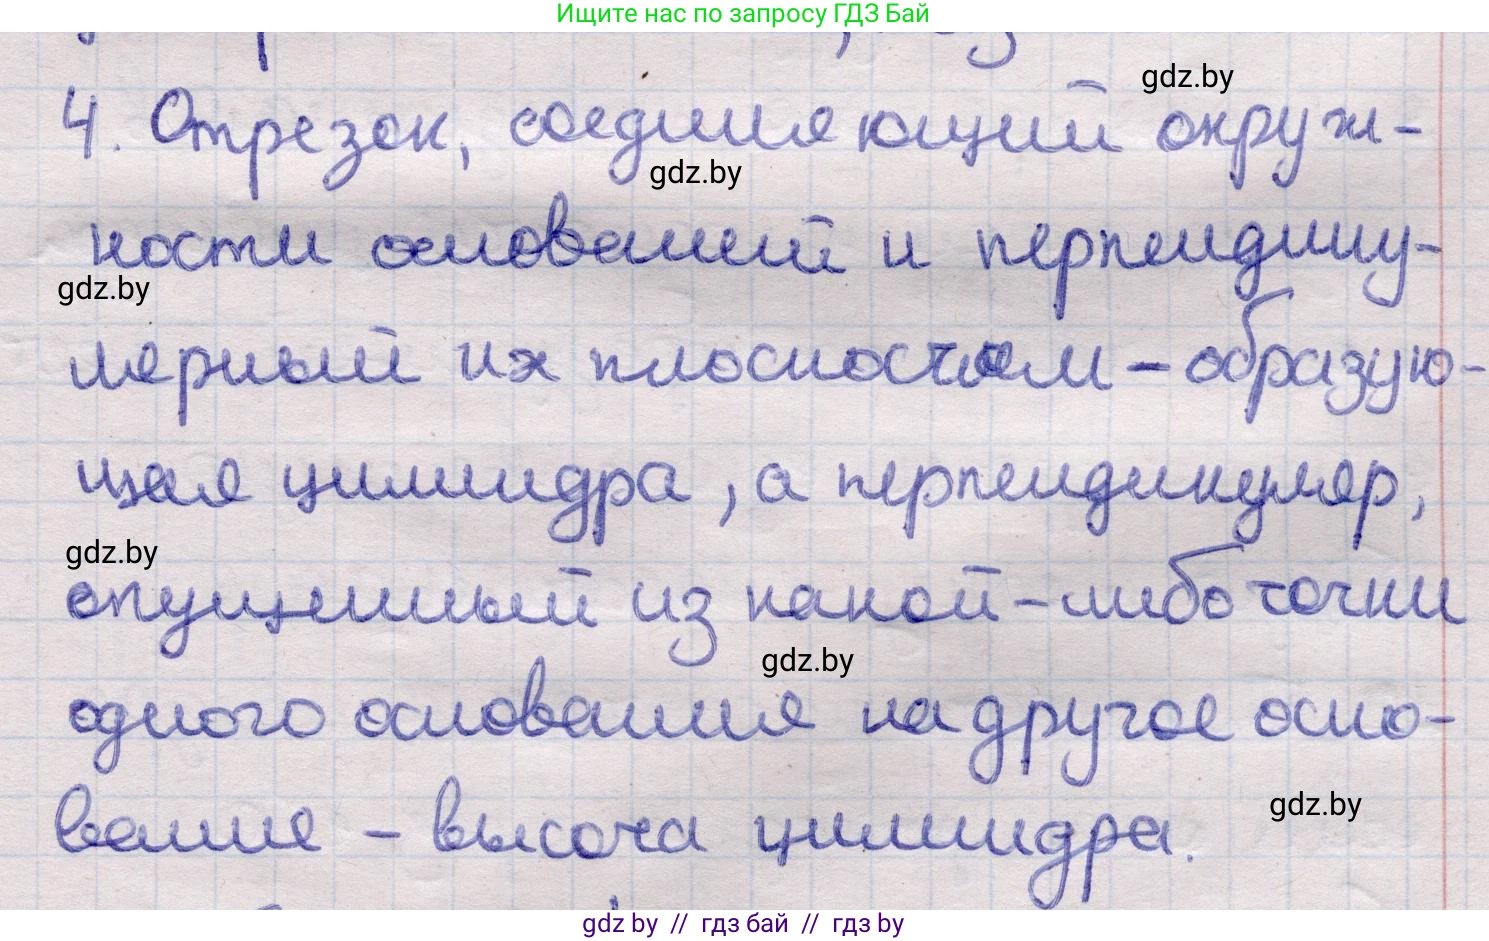 Ищите нас по запросу ГДЗ Бай
gdz.by
4. Отрезок, соединяющий окруж-
gdz.by
ности оснований и перпендику-
gdz.by
лярный их плоскостям – образую-
щая цилиндра, а перпендикуляр,
gdz.by
опущенный из какой-либо точки
gdz.by
одного основания на другое осно-
gdz.by
вание – высота цилиндра.
gdz by // гдз бай // гдз by